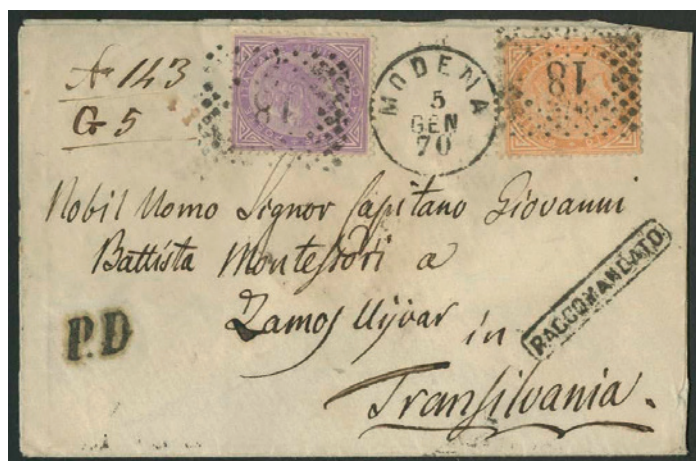 No 143
G 5
MODENA
5
GEN
70
18
18
Nobil Uomo Signor Capitano Giovanni
Battista Montessori a
Zamos Ujvar in
Transilvania.
P.D
RACCOMANDATO